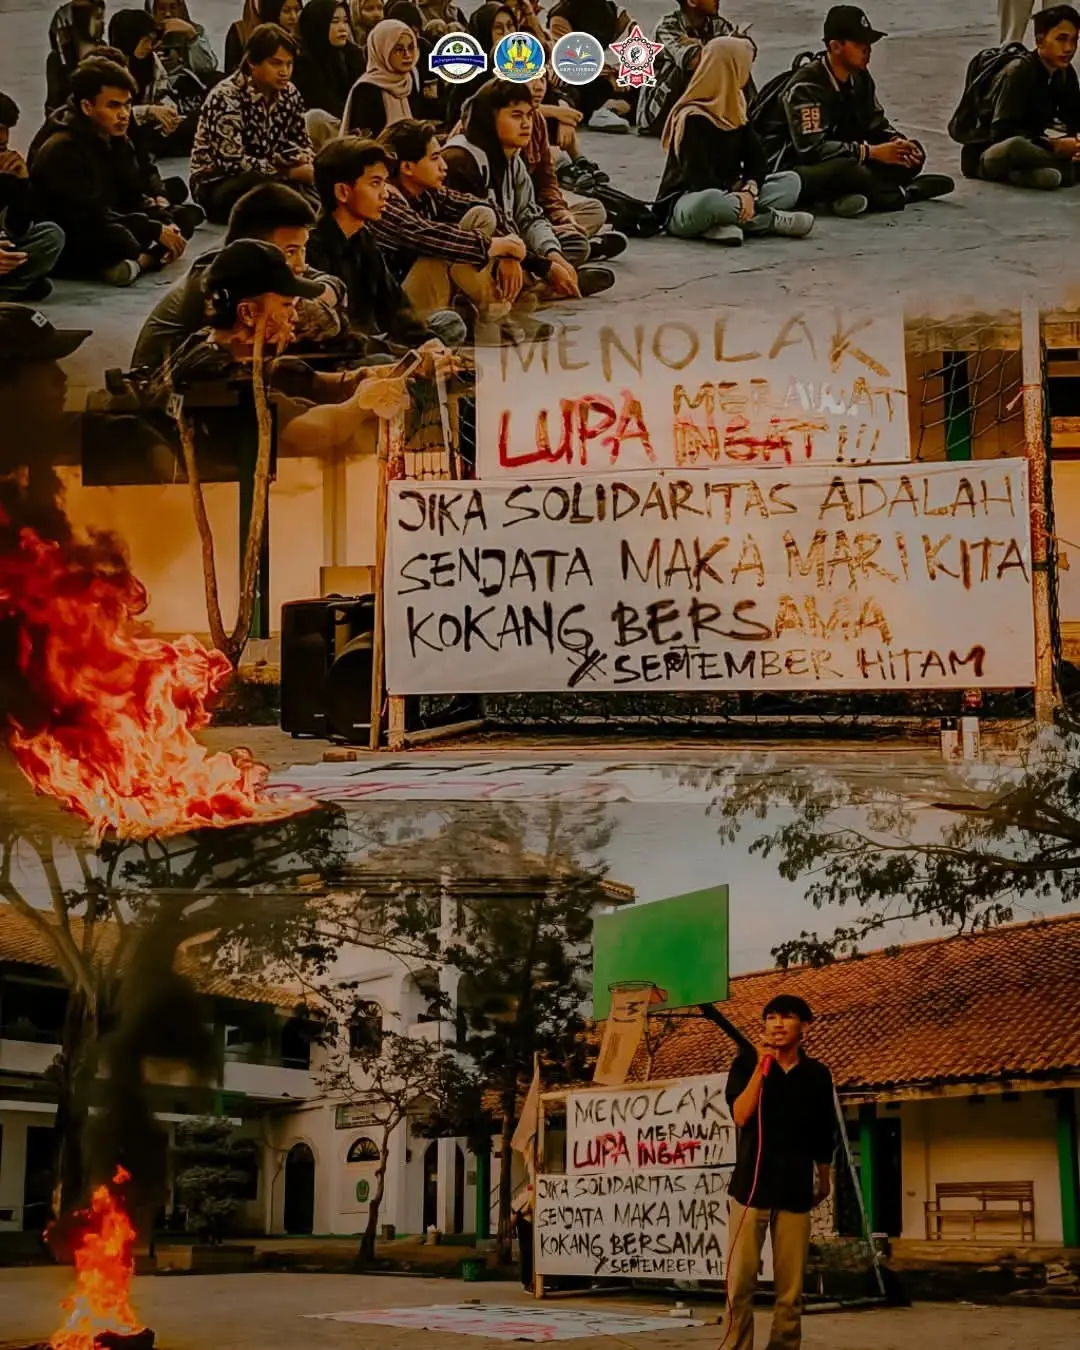 MENOLAK
LUPA MERAWAT
INGAT!!!
JIKA SOLIDARITAS ADALAH
SENJATA MAKA MARI KITA
KOKANG BERSAMA
X SEPTEMBER HITAM
MENOLAK
LUPA MERAWAT
INGAT!!!
JIKA SOLIDARITAS ADA
SENJATA MAKA MARI
KOKANG BERSAMA
X SEPTEMBER HI